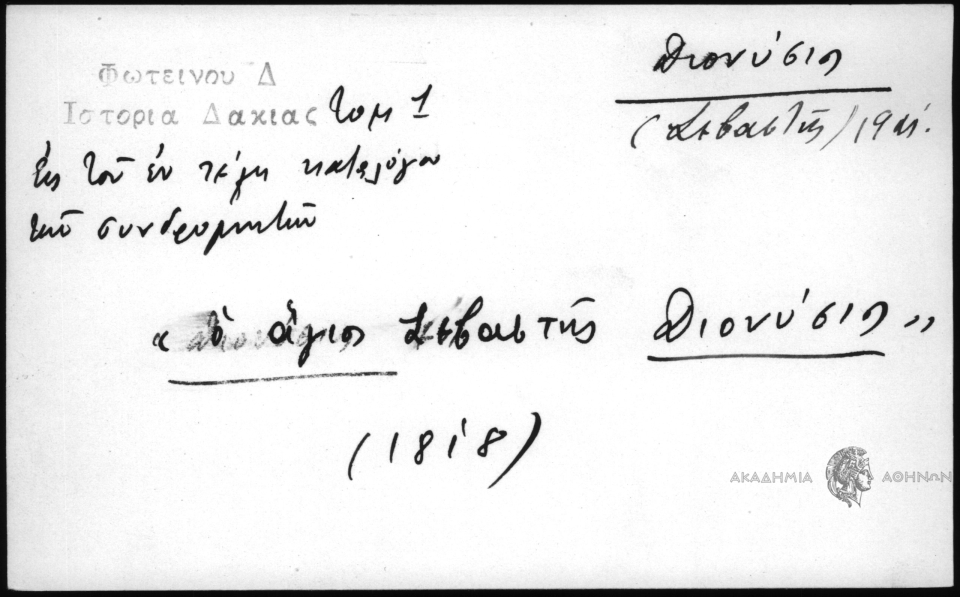 Φωτεινου Δ
Ιστορια Δακιας τομ 1
Ἐκ τοῦ ἐν τέλει καταλόγου
τῶν συνδρομητῶν
Διονύσιος
(Σεβαστῆς) 19 αἰ.
« ὁ ἅγιος Σεβαστῆς Διονύσιος »
(1818)
ΑΚΑΔΗΜΙΑ ΑΘΗΝΩΝ